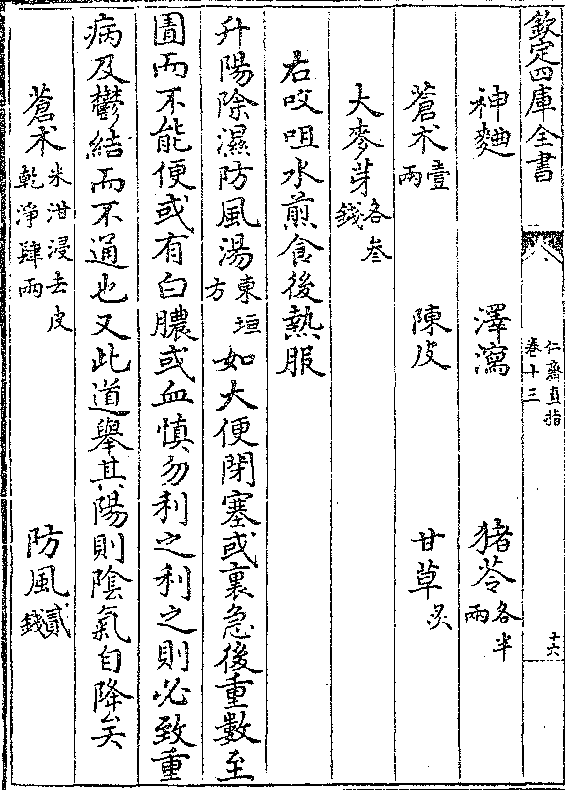 欽定四庫全書 仁齋直指 卷十三 十六
神麯 澤瀉 猪苓各半兩
蒼术壹兩 陳皮 甘草炙
大麥芽各叁錢
右㕮咀水煎食後熱服
升陽除濕防風湯東垣方 如大便閉塞或裏急後重數至
圊而不能便或有白膿或血慎勿利之利之則必致重
病及鬱結而不通也又此道舉其陽則陰氣自降矣
蒼术米泔浸去皮乾淨肆兩 防風貳錢